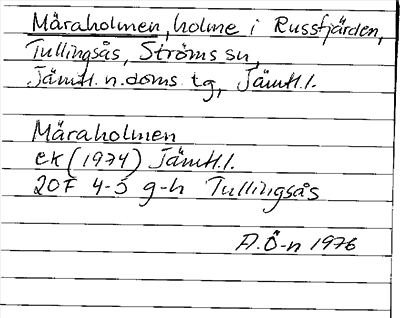 Måraholmen, holme i Russfjärden,
Tullingsås, Ströms sn,
Jämtl. n. doms. tg, Jämtl. l.
Måraholmen
ek (1974) Jämtl. l.
20F 4-5 g-h Tullingsås
A. Ö-n 1976